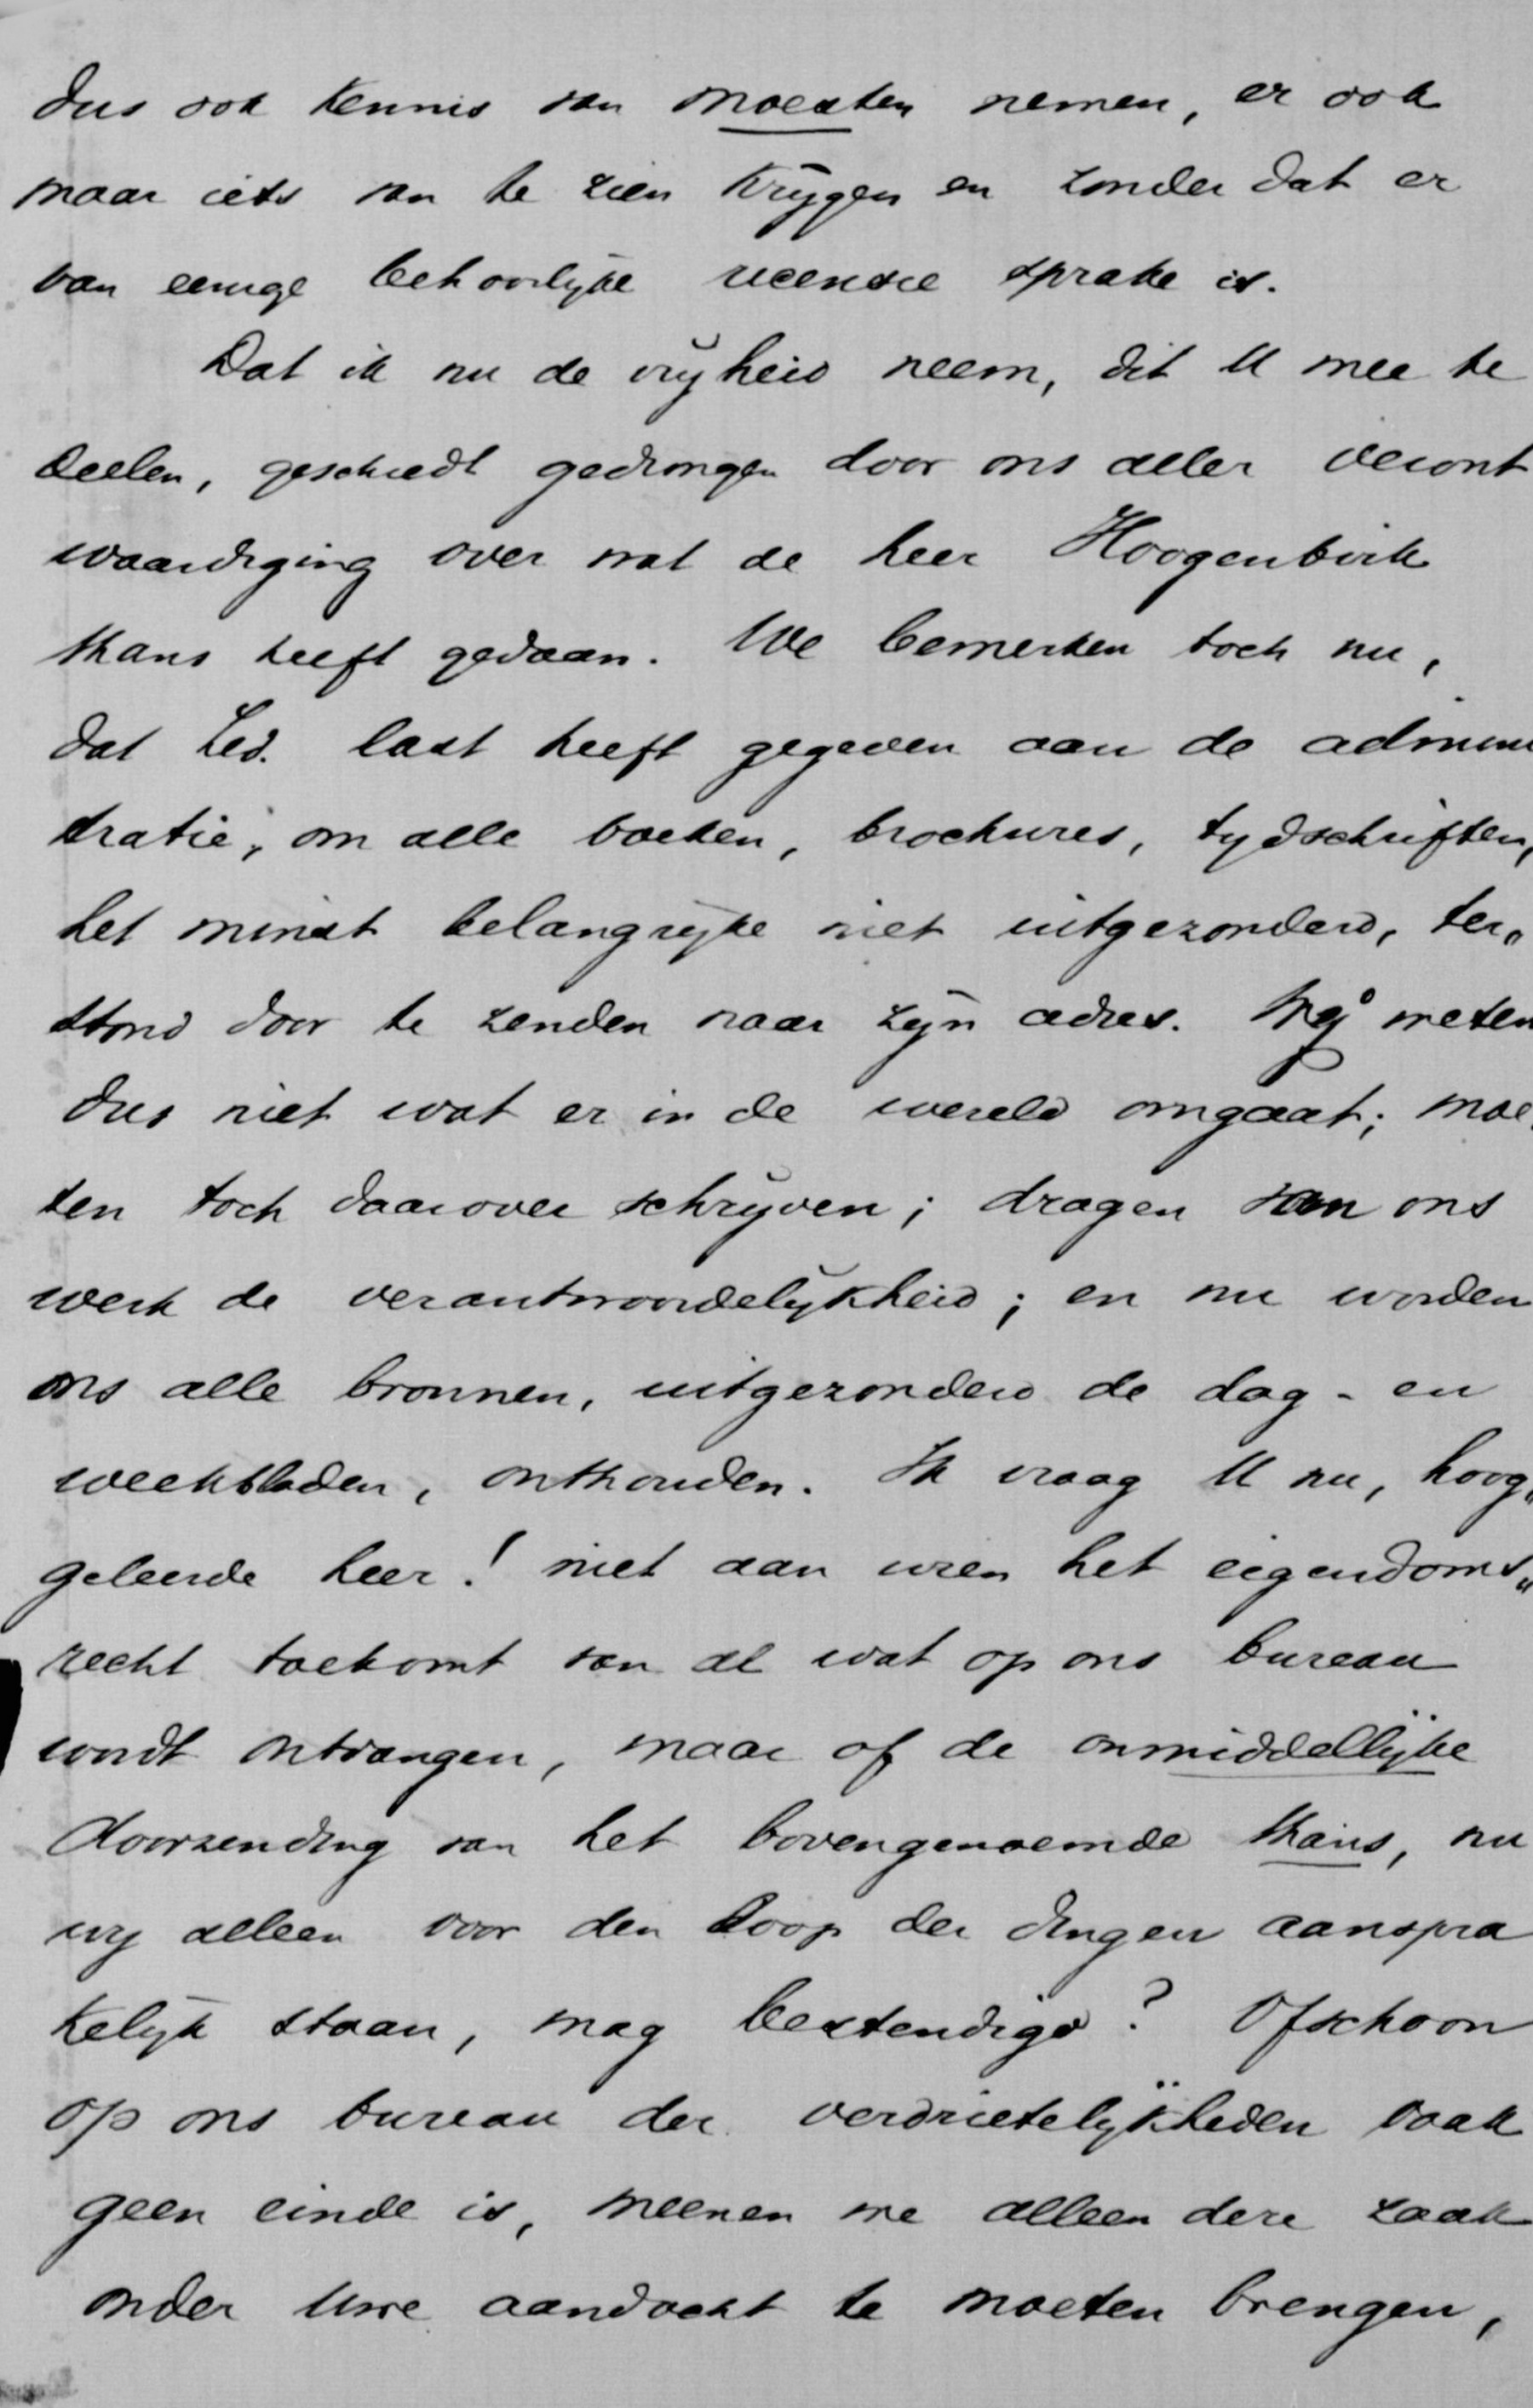 dus ook kennis van moesten nemen, er ook
maar iets van te zien krijgen en zonder dat er
van eenige behoorlijke recensie sprake is.
Dat ik nu de vrijheid neem, dit U mee te
deelen, geschiedt gedrongen door ons aller veront
waardiging over wat de heer Hoogenbirk
thans heeft gedaan. We bemerken toch nu,
dat ZEd. last heeft gegeven aan de admini
stratie, om alle boeken, brochures, tijdschriften,
het minst belangrijke niet uitgezonderd, ter„
stond door te zenden naar zijn adres. Wij weten
dus niet wat er in de wereld omgaat; moe
ten toch daarover schrijven; dragen van ons
werk de verantwoordelijkheid; en nu worden
ons alle bronnen, uitgezonderd de dag- en
weekbladen, onthouden. Ik vraag U nu, hoog„
geleerde heer! niet aan wien het eigendoms„
recht toekomt van al wat op ons bureau
wordt ontvangen, maar of de onmiddellijke
doorzending van het bovengenoemde thans, nu
wij alleen voor den loop der dingen aanspra
kelijk staan, mag bestendigd? Ofschoon
op ons bureau der verdrietelijkheden vaak
geen einde is, meenen we alleen deze zaak
onder Uwe aandacht te moeten brengen,